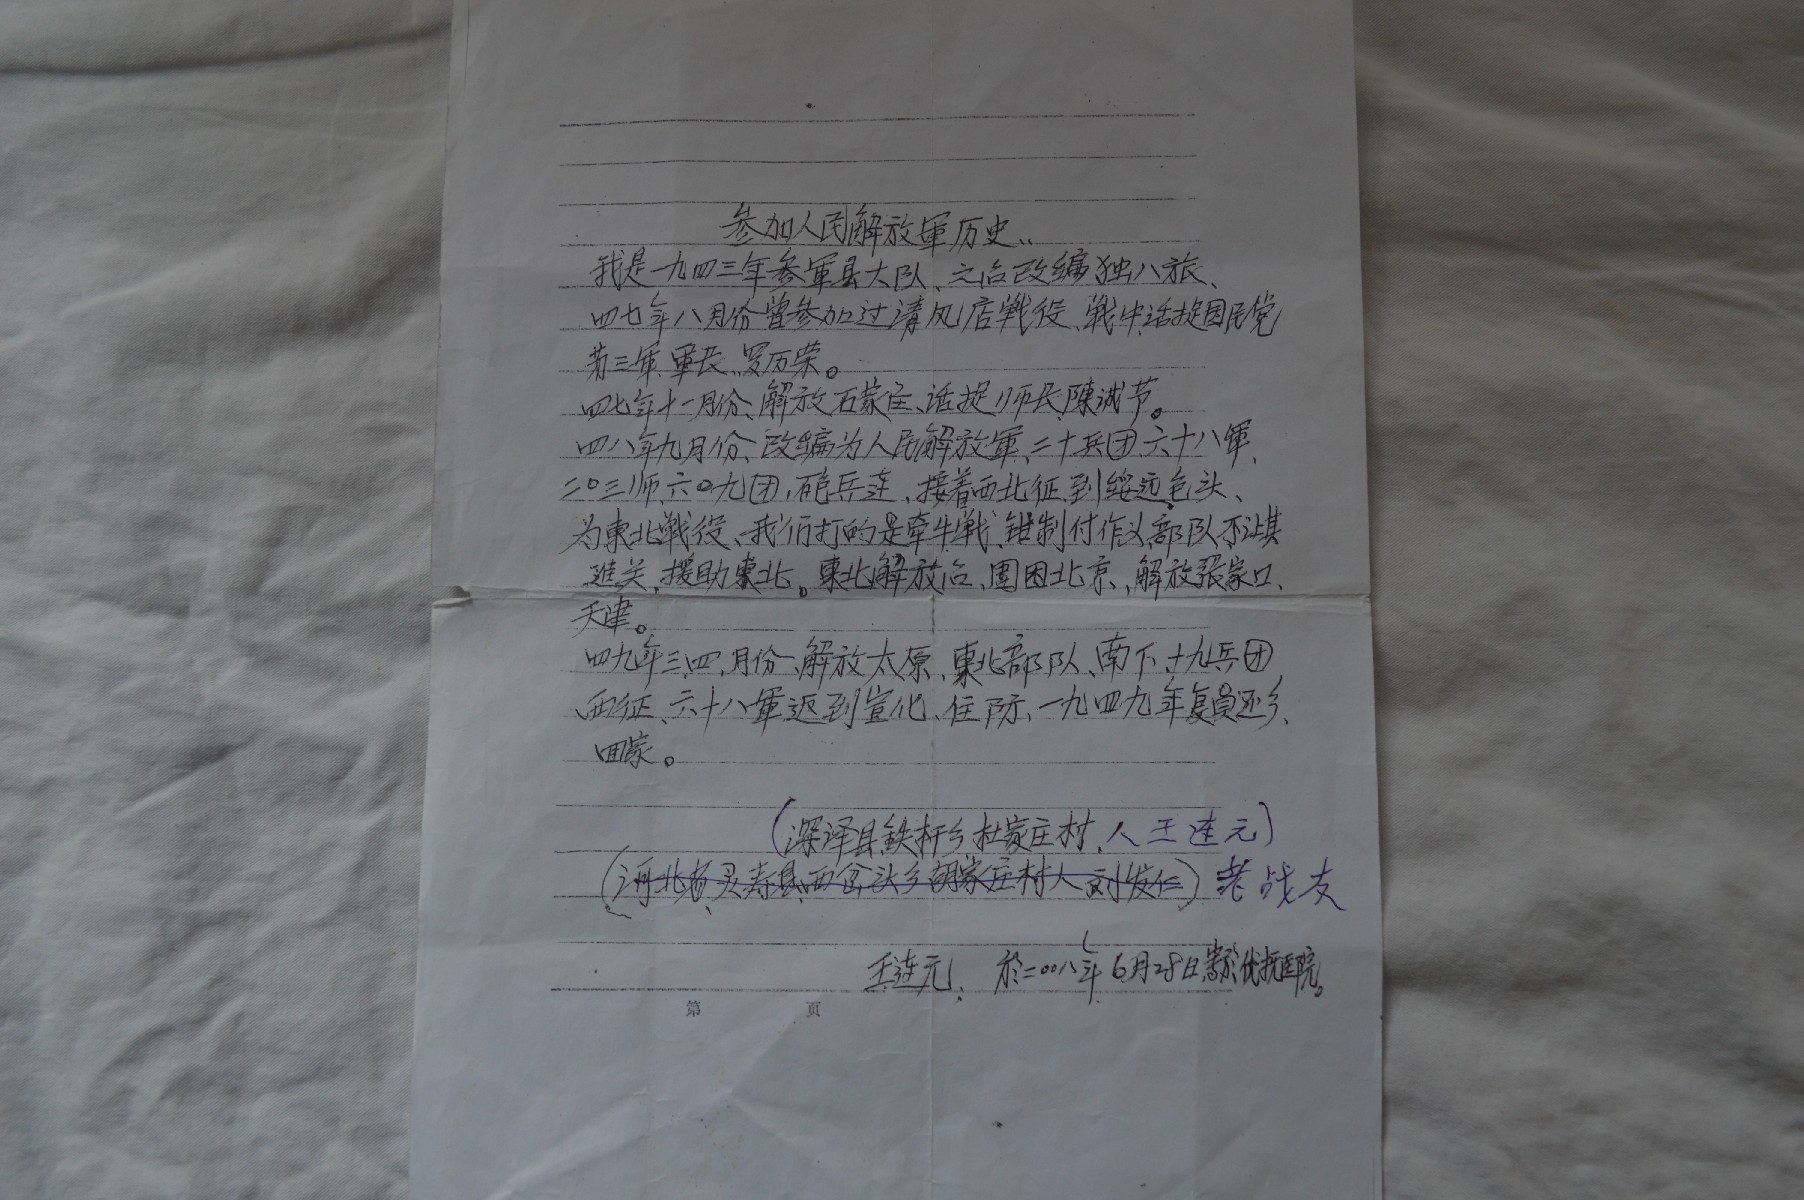 参加人民解放軍历史、、
我是一九四三年参軍县大队、之后改编独八旅、
四七年八月份曾参加过清风店戦役、戦中活捉国民党
苐三軍、軍長、罗历荣。
四七年十一月份、解放石家庄、活捉师長陳诚节。
四八年九月份、改编为人民解放軍、二十兵团、六十八軍、
二〇三师六〇九团,砲兵连、接着西北征到绥远包头、
为東北戦役、我们打的是牵牛戦、钳制付作义部队不让其
進关、援助東北。東北解放后、围困北京、解放張家口、
天津。
四九年三、四、月份、解放太原、東北部队、南下、十九兵团
西征、六十八軍返到宣化、住防、一九四九年复員还乡、
回家。
(深译县铁杆乡杜家庄村、人王连元)
(河北省、灵寿县西岔头乡胡家庄村人刘发仁) 老战友
王连元、 於二〇〇八年6月28日 於优抚医院。
第 页